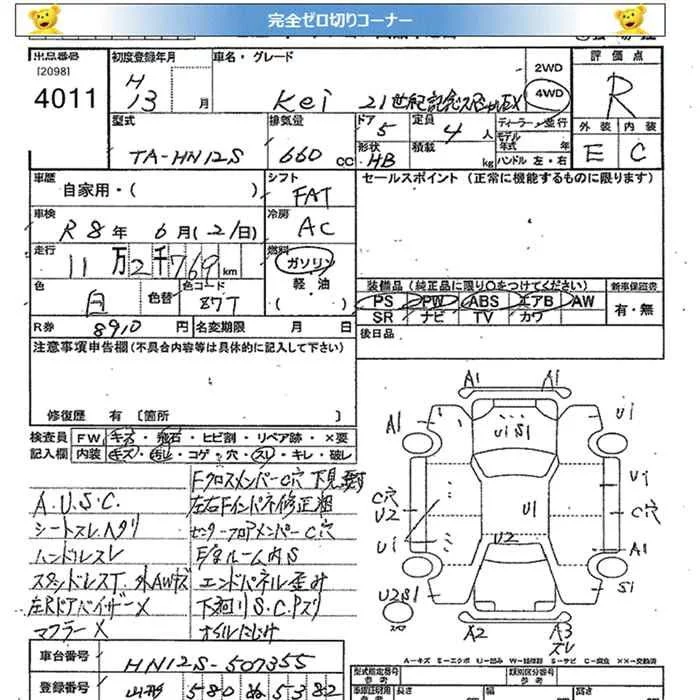 完全ゼロ切りコーナー
出品番号
[2098]
4011
初度登録年月
H
13 月
車名・グレード
Kei 21世紀記念スペシャルEX
2WD
4WD
評価点
R
外装 内装
E C
型式
TA-HN12S
排気量
660 CC
ドア
5
形状
HB
定員
4 人
積載 kg
ディーラー・並行
モデル
年式 年
ハンドル 左・右
車歴
自家用・( )
シフト
FAT
セールスポイント (正常に機能するものに限ります)
車検
R8年 6月(21日)
冷房
AC
走行
11万2千769km
燃料
ガソリン
軽・油
( )
色
白
色替
色コード
87T
装備品(純正品に限り○をつけてください)
PS PW ABS エアB AW
SR ナビ TV カワ
新車保証書
有・無
R券 8910円
名変期限 月 日
後日品
注意事項申告欄(不具合内容等は具体的に記入して下さい)
修復歴 有 [箇所 ]
検査員
記入欄
FW キズ・飛石・ヒビ割・リペア跡・×要
内装 キズ・汚れ・コゲ・穴・スレ・キレ・破レ
A.U.S.C.
シートスレ、ヘタリ
ハンドルスレ
外AWキズ
左RドアバイザーX
マフラーX
FクロスメンバーC穴
左右Fインパネ修正粗
センターフロアメンバーC穴
E/gルーム内S
エンドパネル歪み
下廻りS.C.Pズリ
オイルにじみ
A1 A1
A1 U1 S1 U1
U1
C穴 U1 C穴
U2 U2
U1 A1
U2 S1 S1
A2 A3
スレ
車台番号
HN12S-507355
登録番号
山形 580 ぬ 5382
A-キズ E-エクボ U-凹み W-補修跡 S-サビ C-腐食 XX-交換済
型式指定番号
類別区分番号
参考
長さ
幅
高さ